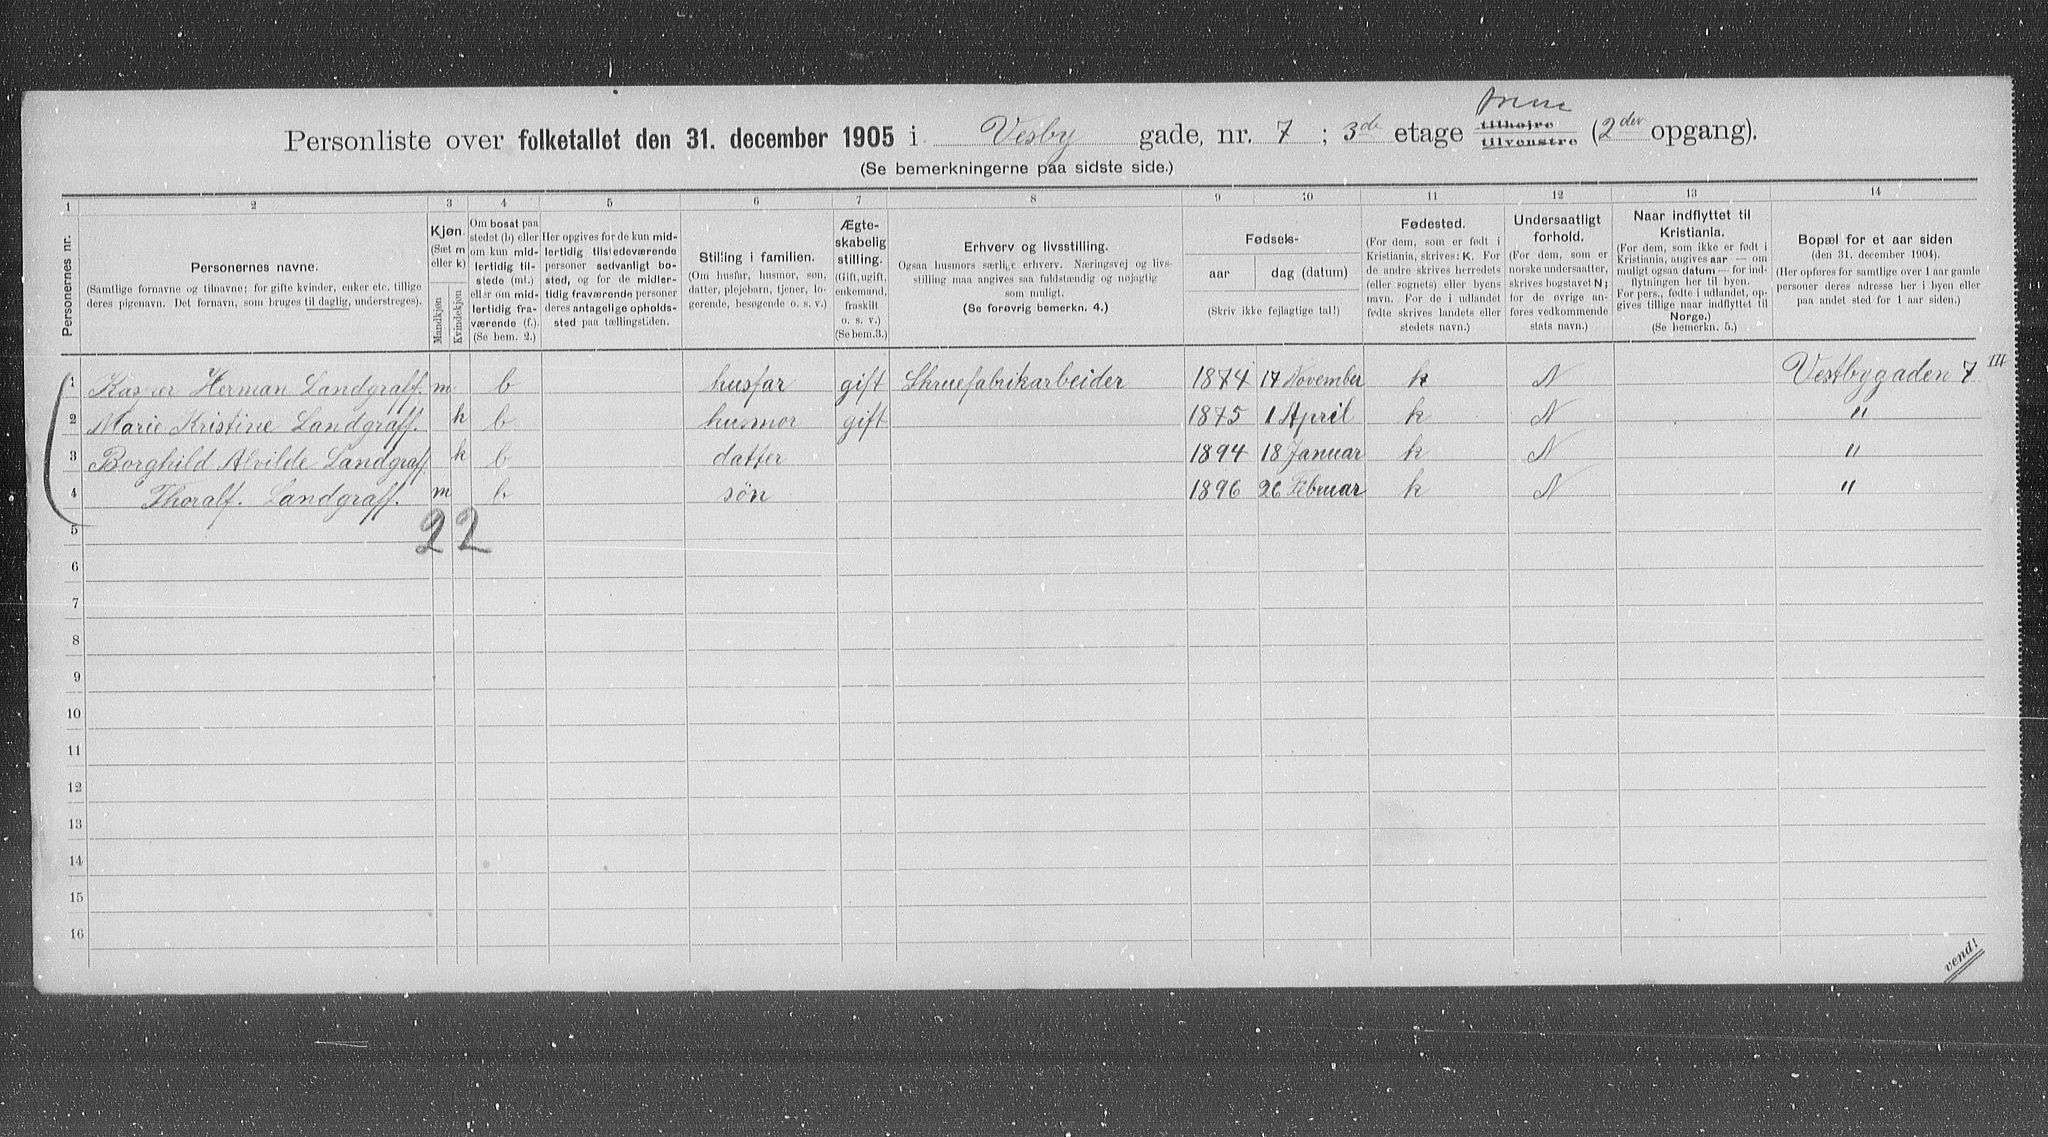 Personliste over folketallet den 31. december 1905 i Vesby gade, nr. 7 ; 3de etage tilhøjre tilvenstre (2den opgang).
(Se bemerkningerne paa sidste side.)
1 2 3 4 5 6 7 8 9 10 11 12 13 14
Personernes nr.
Personernes navne.
(Samtlige fornavne og tilnavne; for gifte kvinder, enker etc. tillige
deres pigenavn. Det fornavn, som bruges til daglig, understreges).
Kjøn.
(Sæt m
eller k)
Mandkjøn
Kvindekjøn
Om bosat paa
stedet (b) eller
om kun mid-
lertidig til-
stede (mt.)
eller om mid-
lertidig fra-
værende (f.)
(Se bem. 2.)
Her opgives for de kun mid-
lertidig tilstedeværende
personer sedvanligt bo-
sted, og for de midler-
tidig fraværende personer
deres antagelige opholds-
sted paa tællingstiden.
Stilling i familien.
(Om husfar, husmor, søn,
datter, plejebarn, tjener, lo-
gerende, besøgende o. s. v.)
Ægte-
skabelig
stilling.
(Gift, ugift,
enkemand,
fraskilt
o. s. v.)
(Se bem.3.)
Erhverv og livsstilling.
Ogsaa husmors særlige erhverv. Næringsvej og livs-
stilling maa angives saa fuldstændig og nøjagtig
som muligt.
(Se forøvrig bemerkn. 4.)
Fødsels-
aar dag (datum)
(Skriv ikke fejlagtige tal!)
Fødested.
(For dem, som er født i
Kristiania, skrives: K. For
de andre skrives herredets
(eller sognets) eller byens
navn. For de i udlandet
fødte skrives landets eller
stedets navn.)
Undersaatligt
forhold.
(For dem, som er
norske undersaatter,
skrives bogstavet N;
for de øvrige an-
føres vedkommende
stats navn.)
Naar indflyttet til
Kristiania.
(For dem, som ikke er født i
Kristiania, angives aar — om
muligt ogsaa datum — for ind-
flytningen her til byen.
For pers., fødte i udlandet, op-
gives tillige naar indflyttet til
Norge.)
(Se bemerkn. 5.)
Bopæl for et aar siden
(den 31. december 1904).
(Her opføres for samtlige over 1 aar gamle
personer deres adresse her i byen eller
paa andet sted for 1 aar siden.)
1 Kasper Herman Landgraff. m b husfar gift Skruefabrikarbeider 1874 17 November k N Vestbygaden 7 III
2 Marie Kristine Landgraff. k b husmor gift 1875 1 April k N "
3 Borghild Alvilde Landgraff k b datter 1894 18 Januar k N "
4 Thoralf. Landgraff. m b søn 1896 26 Februar k N "
5
22
6
7
8
9
10
11
12
13
14
15
16
vend!